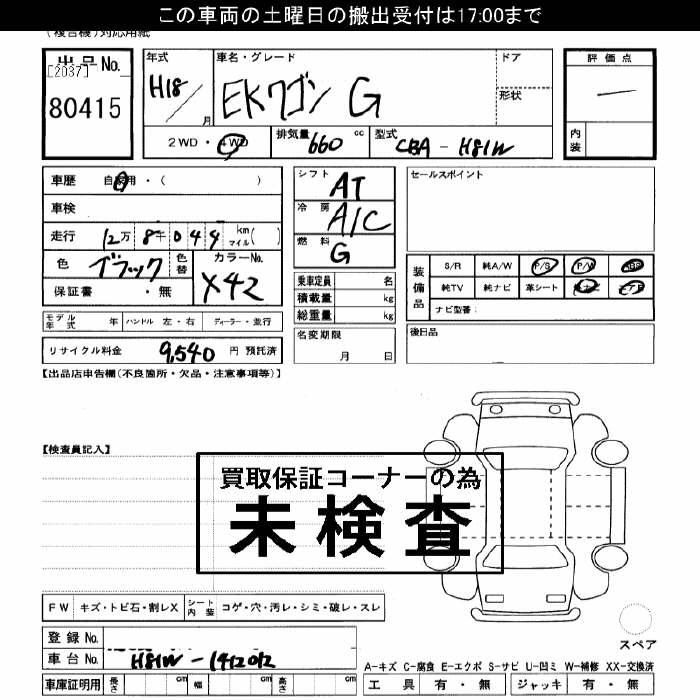 この車両の土曜日の搬出受付は17:00まで
(複合機)対応用紙
出品No.
[2037]
80415
年式
H18
月
車名・グレード
EKワゴン G
ドア
形状
評価点
—
内装
2WD・4WD
排気量 660 cc
型式 CBA-H81W
車歴 自家用・( )
車検
走行 12万8千044 km マイル( )
色 ブラック
色替
カラーNo. X42
保証書 ・無
シフト AT
冷房 A/C
燃料 G
乗車定員 名
積載量 kg
総重量 kg
名変期限
月 日
セールスポイント
装備品
S/R 純A/W P/S P/W
純TV 純ナビ 革シート
ナビ型番:
後日品
モデル年式 年 ハンドル 左・右 ディーラー・並行
リサイクル料金 9,540 円 預託済
【出品店申告欄(不良箇所・欠品・注意事項等)】
【検査員記入】
買取保証コーナーの為
未検査
FW キズ・トビ石・割レX シート内装 コゲ・穴・汚レ・シミ・破レ・スレ
登録No.
車台No. H81W-1412012
車庫証明用 長さ cm 幅 cm 高さ cm
スペア
A-キズ C-腐食 E-エクボ S-サビ U-凹ミ W-補修 XX-交換済
工具 有・無 ジャッキ 有・無